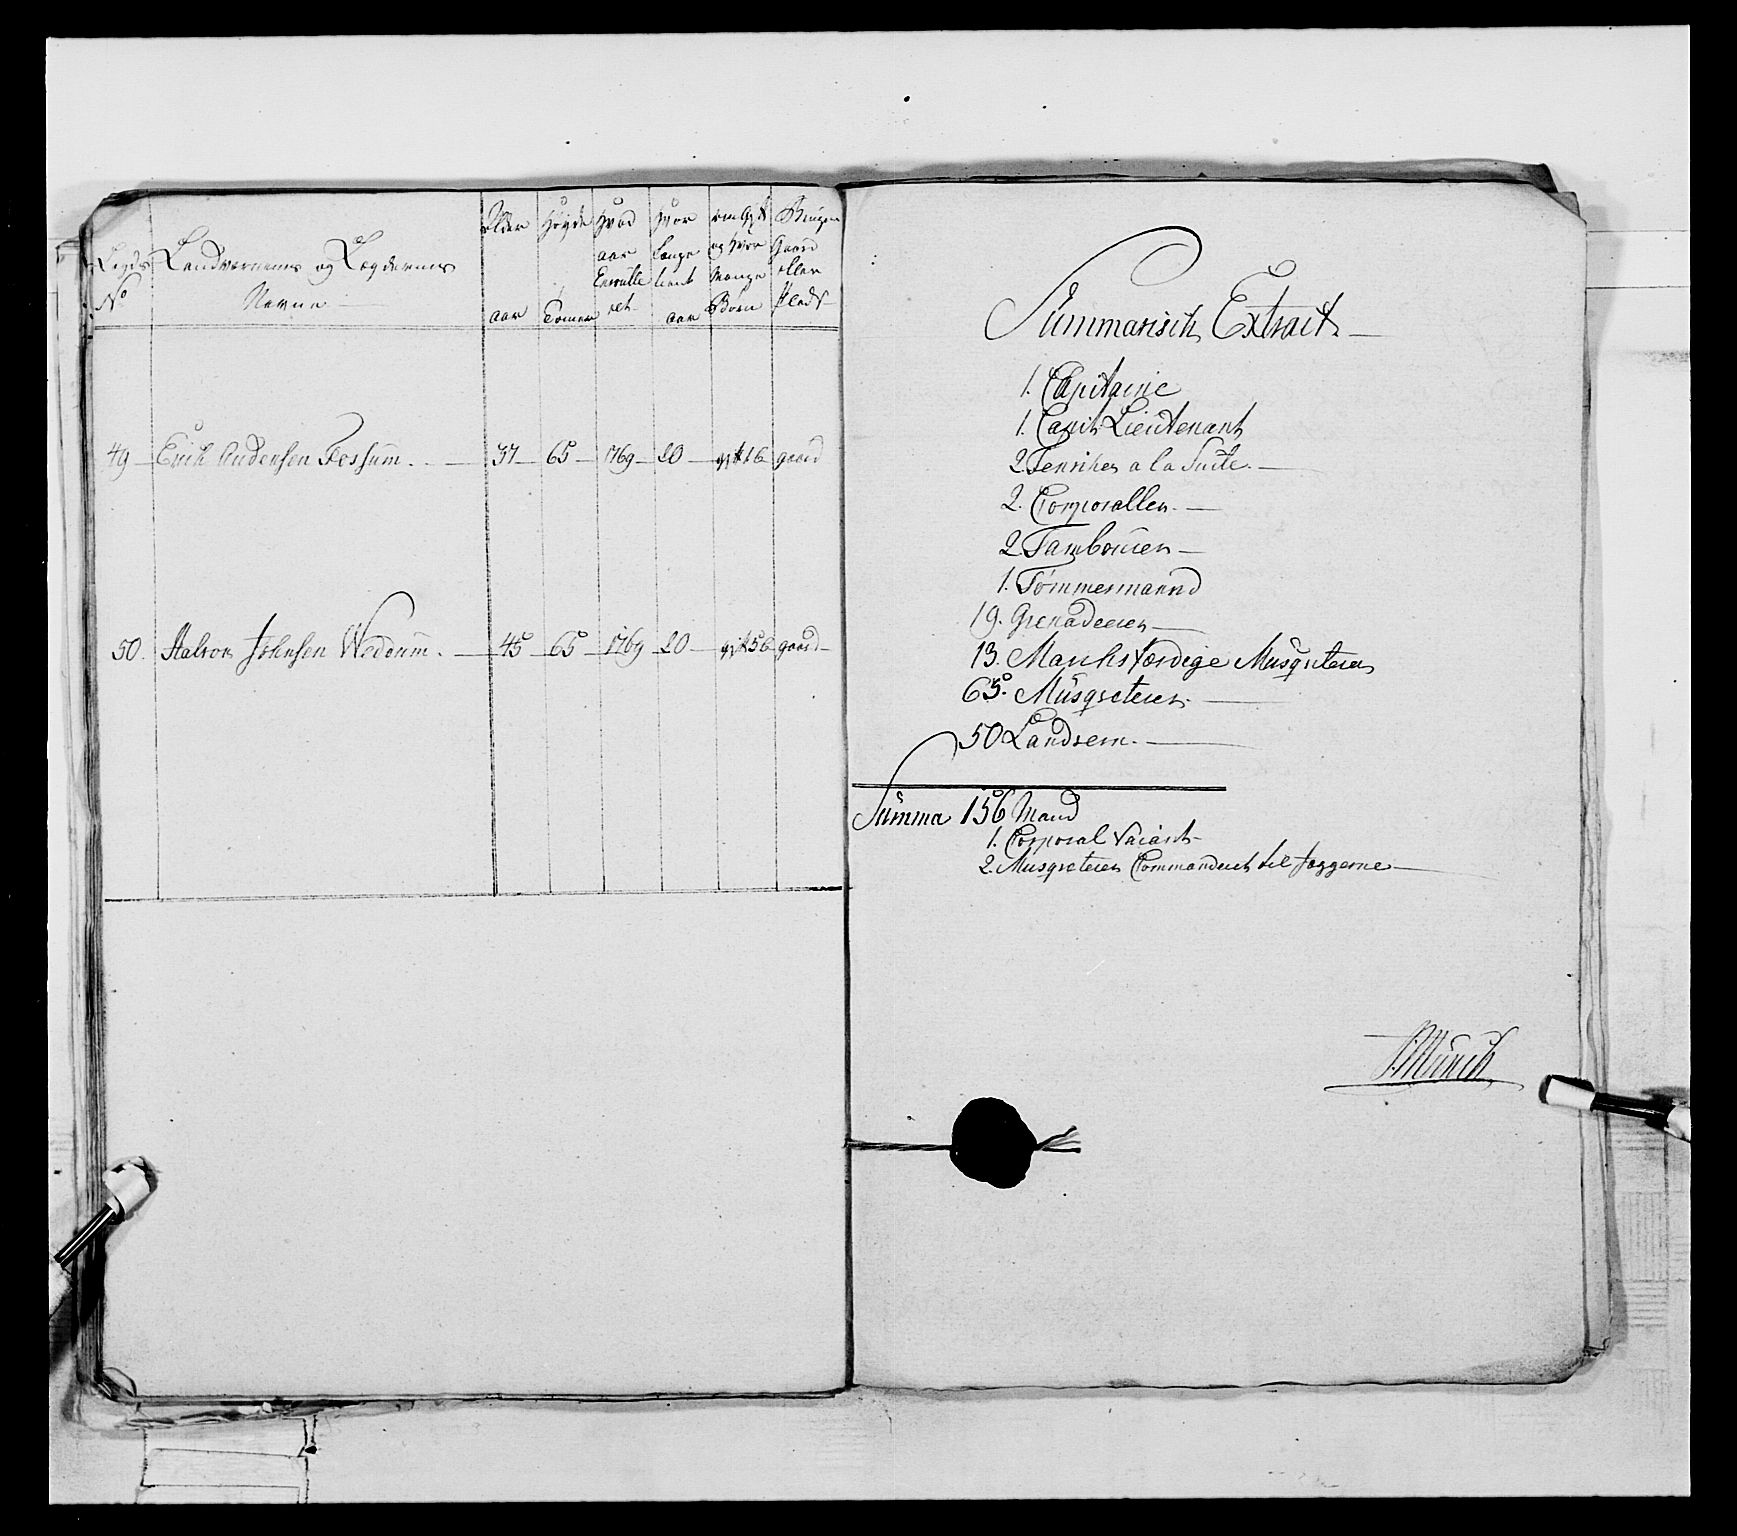 Legds No
Landværnens og Lægdernes Navne
Alder aar
Høyde Tomer
Hvad aar Enrulleret
Hvor længe tient aar
om Gift og hvor mange Børn
Bruger Gaard eller Plads
49 Erich Andersen Fossum. 37 65 1769 20 gift 6 gaard
50. Halvor Johnsen Wedum. 45 65 1769 20 gift 56 gaard
Summarisch Extract
1. Capitaine
1. Capit Lieutenant
2. Fenriker a la Suite.
2. Corporaller.
2. Tambouer
1. Tømmermannd
19. Grenadeerer
13. Marchsfærdige Musqueterer
65. Musqveterer.
50 Landvern.
Summa 156 Mand
1. Corporal Vacant
2. Musqveterer Commanderet til Jæggerne
Münch